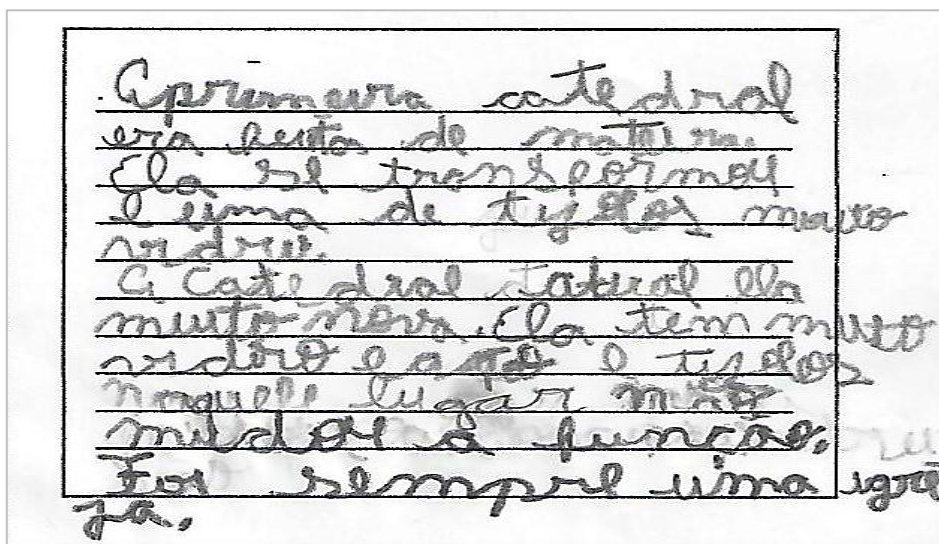 A primeira catedral
era feita de mateira.
Ela se transformou
e uma de tijolos muito
vidru.
A Catedral tatural ela
muito nova. Ela tem muito
vidro e aço e tijolos
naquele lugar não
mudou a função.
Foi sempre uma igre
ja.